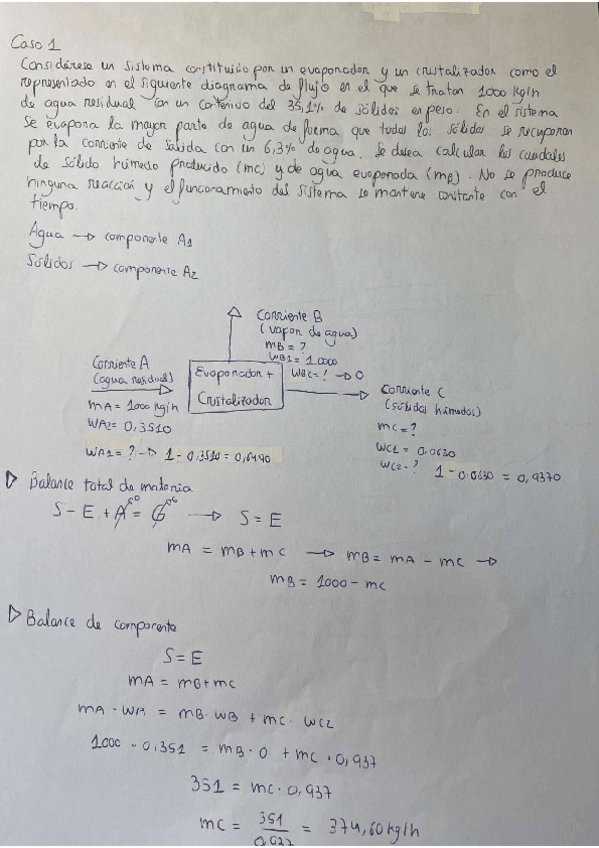 Caso 1
Considérese un sistema constituido por un evaporador y un cristalizador como el
representado en el siguiente diagrama de flujo en el que se tratan 1000 kg/h
de agua residual con un contenido del 35,1% de sólidos en peso. En el sistema
se evapora la mayor parte de agua de forma que todos los sólidos se recuperan
por la corriente de salida con un 6,3% de agua. Se desea calcular los caudales
de sólido húmedo producido (mc) y de agua evaporada (mB). No se produce
ninguna reacción y el funcionamiento del sistema se mantiene constante con el
tiempo.
Agua → componente A1
Sólidos → componente A2
Corriente B
(vapor de agua)
mB = ?
WB1 = 1.0000
WB2 = ? → 0
Corriente A
(agua residual)
mA = 1000 kg/h
WA2 = 0,3510
WA1 = ? → 1 - 0,3510 = 0,6490
Evaporador +
Cristalizador
Corriente C
(sólidos húmedos)
mc = ?
WC1 = 0,0630
WC2 = ? 1 - 0.0630 = 0,9370
▷ Balance total de materia
S - E + A = G → S = E
mA = mB + mC → mB = mA - mC →
mB = 1000 - mC
▷ Balance de componente
S = E
mA = mB + mC
mA · WA = mB · WB + mC · WC2
1000 · 0,351 = mB · 0 + mC · 0,937
351 = mC · 0,937
mC = 351 / = 374,60 kg/h